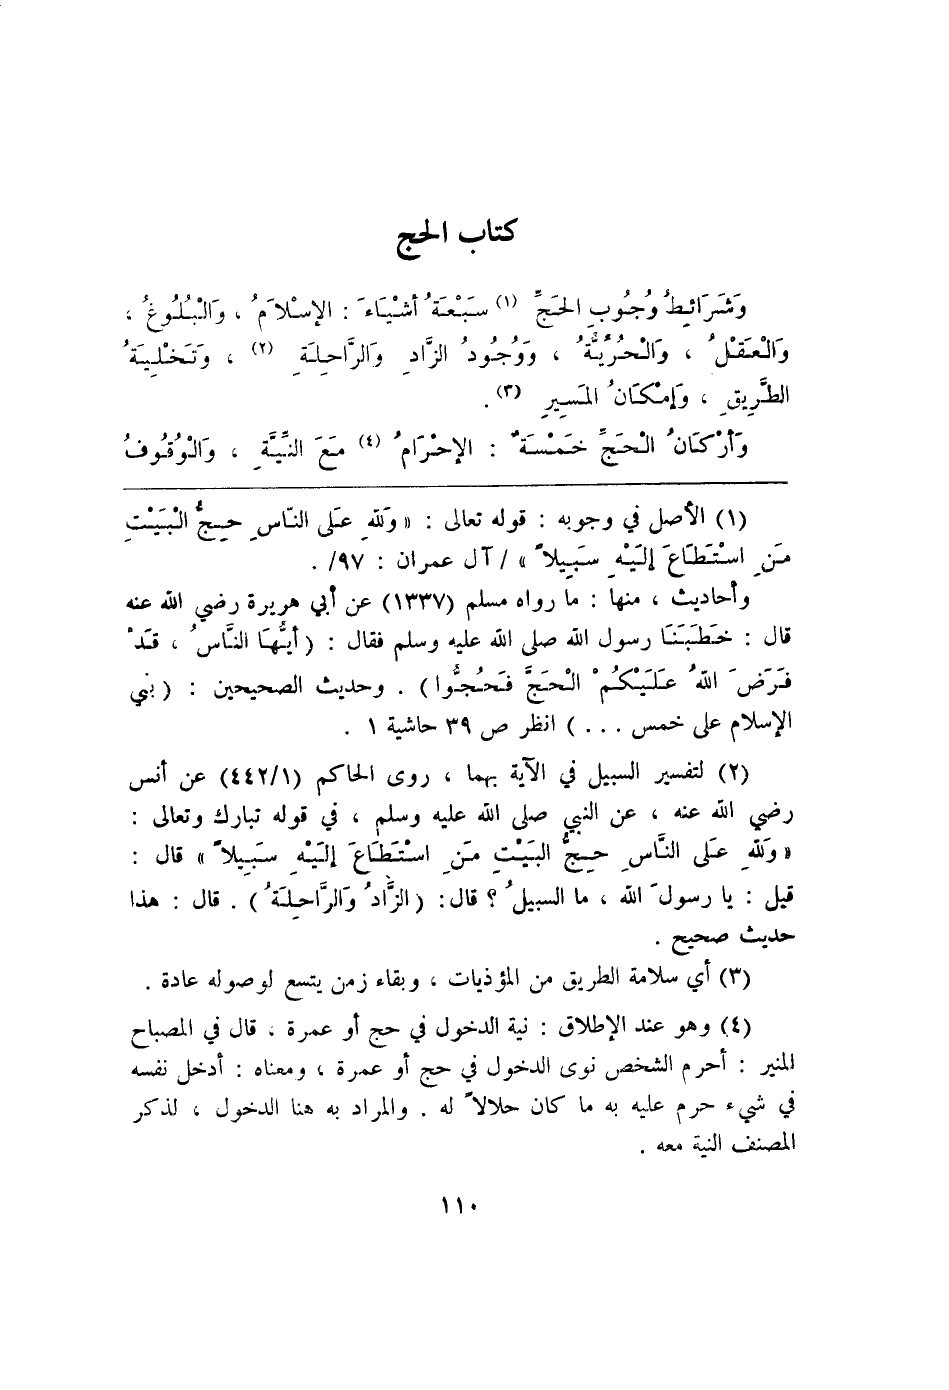 كتاب الحج
وَشَرَائِطُ وُجُوبِ الحَجِّ (١) سَبْعَةُ أشْيَاءَ : الإسْلاَمُ ، وَالْبُلُوغُ ،
وَالْعَقْلُ ، وَالْحُرِّيَّةُ ، وَوُجُودُ الزَّادِ وَالرَّاحِلَةِ (٢) ، وَتَخْلِيَةُ
الطَّرِيقِ ، وَإمْكَانُ المَسِيرِ (٣) .
وَأرْكَانُ الْحَجِّ خَمْسَةٌ : الإحْرَامُ (٤) مَعَ النِّيَّةِ ، وَالْوُقُوفُ
(١) الأصل في وجوبه : قوله تعالى : « وَللهِ عَلَى النَّاسِ حِجُّ الْبَيْتِ
مَنِ اسْتَطَاعَ إلَيْهِ سَبِيلاً » / آل عمران : ٩٧/ .
وأحاديث ، منها : ما رواه مسلم (١٣٣٧) عن أبي هريرة رضي الله عنه
قال : خَطَبَنَا رسول الله صلى الله عليه وسلم فقال : (أيُّهَا النَّاسُ ، قَدْ
فَرَضَ اللهُ عَلَيْكُمْ الْحَجَّ فَحُجُّوا) . وحديث الصحيحين : (بُني
الإسلام على خمس ... ) انظر ص ٣٩ حاشية ١ .
(٢) لتفسير السبيل في الآية بهما ، روى الحاكم (٤٤٢/١) عن أنس
رضي الله عنه ، عن النبي صلى الله عليه وسلم ، في قوله تبارك وتعالى :
« وَللهِ عَلَى النَّاسِ حِجُّ البَيْتِ مَنِ اسْتَطَاعَ إلَيْهِ سَبِيلاً » قال :
قيل : يا رسولَ الله ، ما السبيلُ ؟ قال: (الزَّادُ وَالرَّاحِلَةُ) . قال : هذا
حديث صحيح .
(٣) أي سلامة الطريق من المؤذيات ، وبقاء زمن يتسع لوصوله عادة .
(٤) وهو عند الإطلاق : نية الدخول في حج أو عمرة ، قال في المصباح
المنير : أحرم الشخص نوى الدخول في حج أو عمرة ، ومعناه : أدخل نفسه
في شيء حرم عليه به ما كان حلالاً له . والمراد به هنا الدخول ، لذكر
المصنف النية معه .
١١٠